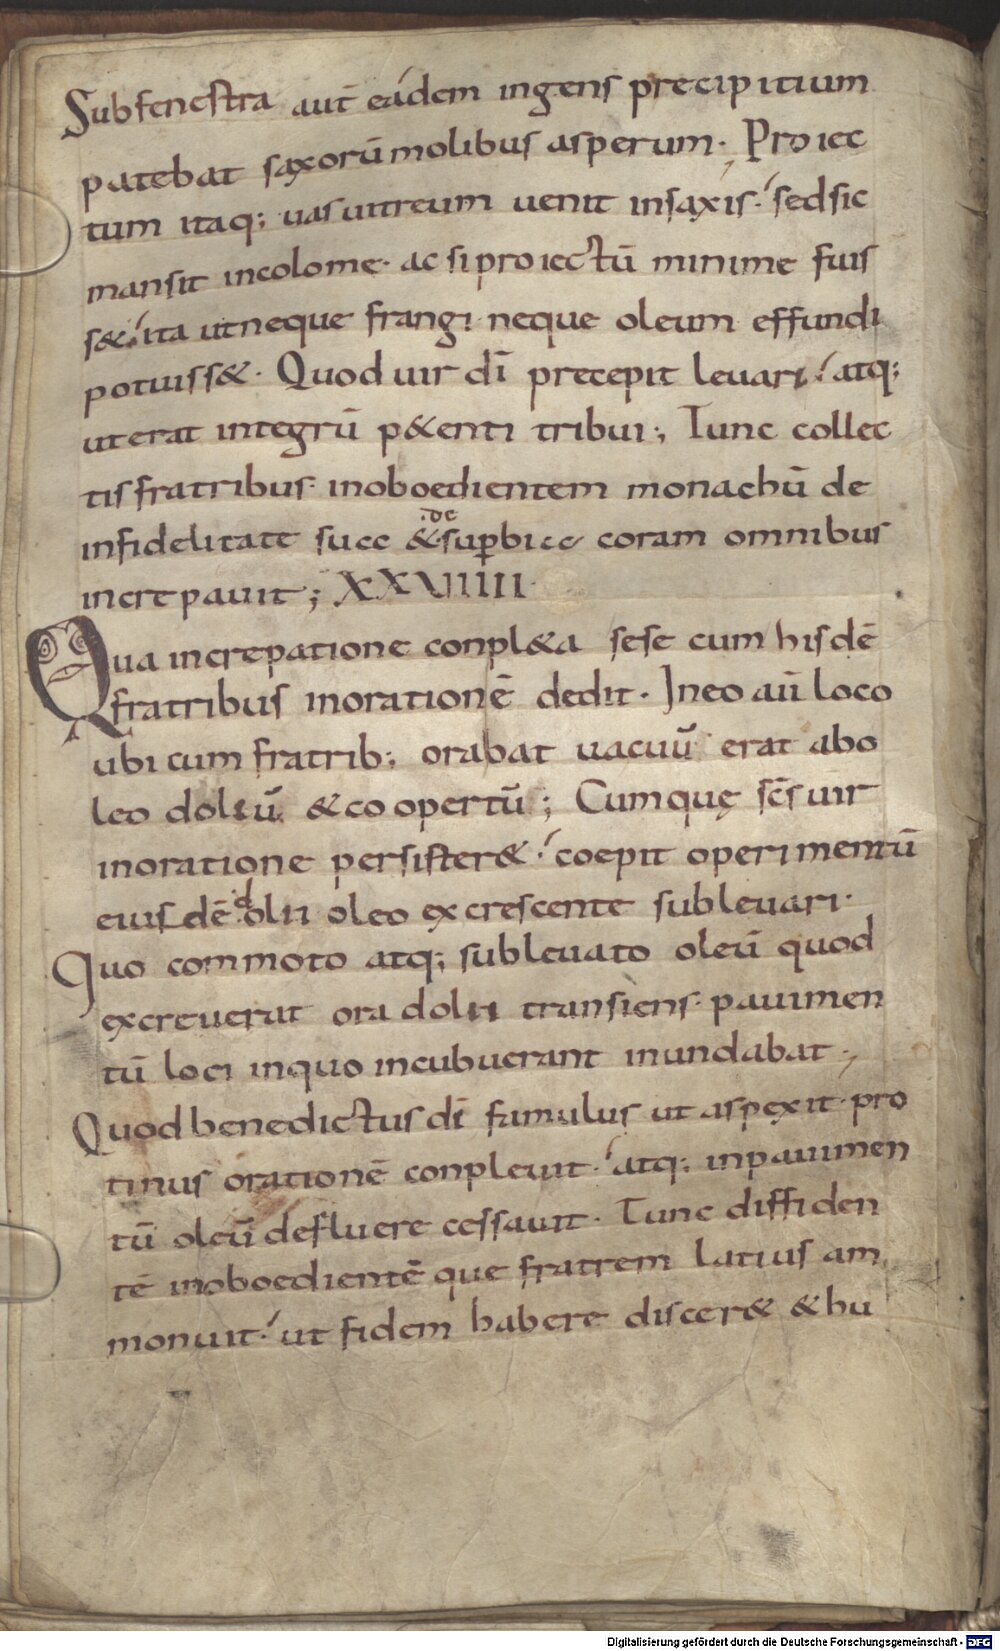 Subfenestra aut̄ eádem ingens precipitium
patebat saxorū molibus asperum. Proiec
tum itaq; uas uitreum uenit insaxis. sedsic
mansit incolome. ac si proiectū minime fuis
s&. ita utneque frangi neque oleum effundi
potuiss&. Quod uir dī precepit leuari. atq;
ut erat integrū p&enti tribui; Tunc collec
tis fratribus. inoboedientem monachū de
infidelitate suae &.de suꝑbiae coram omnibus
increpauit; XXVIIII.
Qua increpatione conpl&a sese cum hisdē
fratribus inorationē dedit. Ineo aū loco
ubi cum fratrib; orabat uacuū erat abo
leo doliū &coopertū; Cumquę sc̄s uir
inoratione persister&. coepit operimentū
eiusdē dolii oleo excrescente subleuari.
Quo commoto atq; subleuato oleū quod
excreuerat ora dolii transiens. pauimen
tū loci inquo incubuerant inundabat.,
Quod benedictus dī famulus ut aspexit. pro
tinus orationē conpleuit. atq; inpauimen
tū oleū defluere cessauit. Tunc diffiden
tē inoboedientē que fratrem latius am
monuit. ut fidem habere discer& &hu
Digitalisierung gefördert durch die Deutsche Forschungsgemeinschaft - DFG